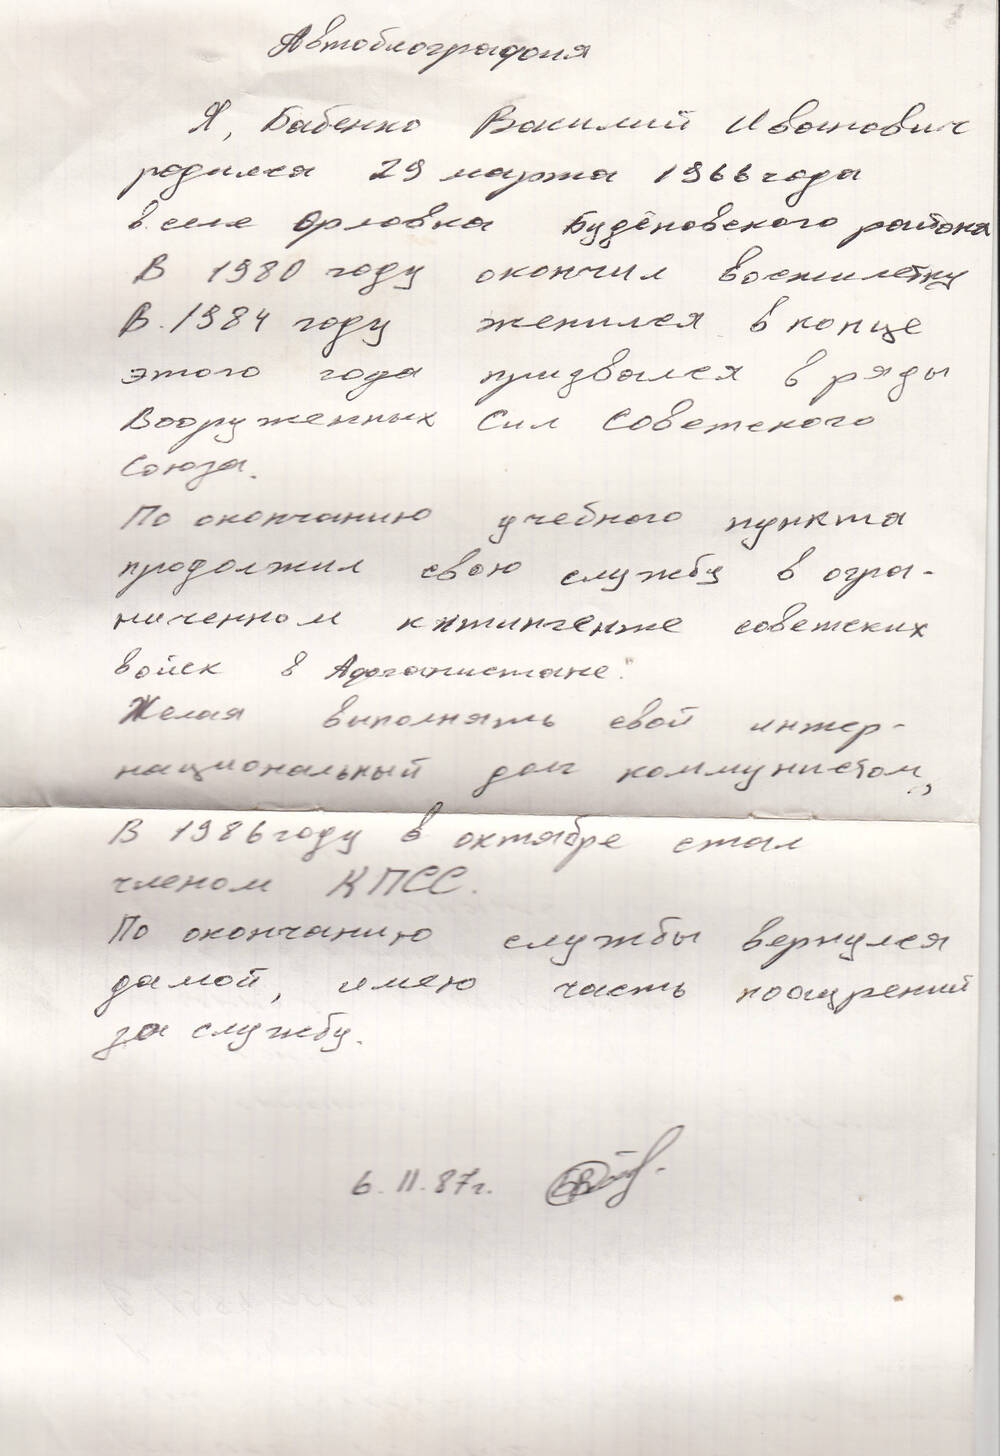 Автобиография
Я, Бабенко Василий Иванович
родился 29 марта 1966 года
в селе Орловка Будёновского района
В 1980 году окончил восмилетку
В. 1984 году женился в конце
этого года призвался в ряды
Вооруженных Сил Советского
Союза.
По окончанию учебного пункта
продолжил свою службу в огра-
ниченном кнтингенте советских
войск в Афганистане.
Желая выполнять свой интер-
национальный долг коммунистом,
В 1986 году в октябре стал
членом КПСС.
По окончанию службы вернулся
дамой, имею часть поощрений
за службу.
6.II.87г.